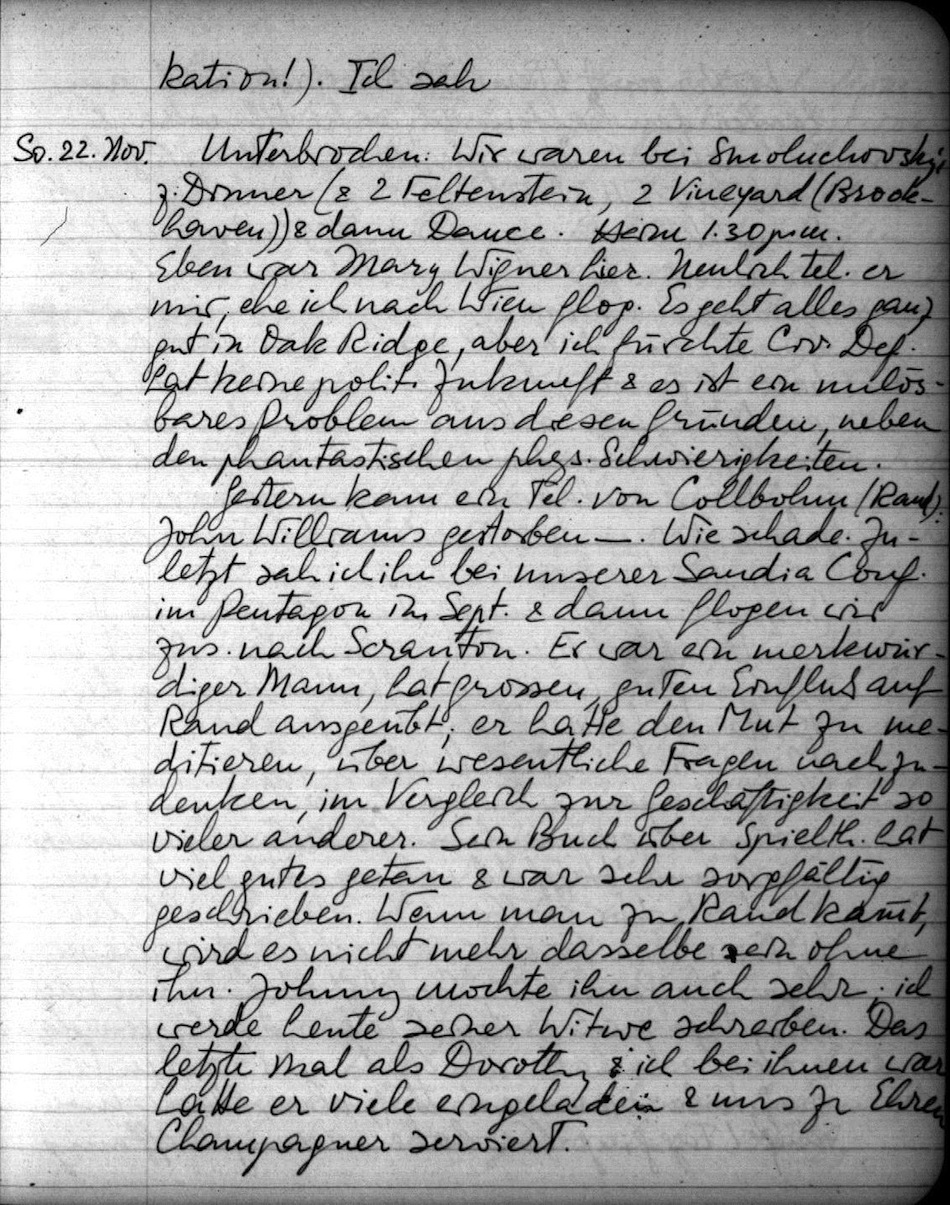 kation!). Ich sah
So. 22. Nov. Unterbrochen: Wir waren bei Smoluchovskis
z. Dinner (& 2 Feltenstein, 2 Vineyard (Brook-
haven)) & dann Dance. Heim 1.30 a.m.
Eben war Mary Wigner hier. Neulich tel. er
mir, ehe ich nach Wien flog. Es geht alles ganz
gut in Oak Ridge, aber ich fürchte Civ. Def.
hat keine polit. Zukunft & es ist ein unlös-
bares Problem aus diesen Gründen, neben
den phantastischen phys. Schwierigkeiten.
Gestern kam ein Tel. von Collbohm (Rand):
John Williams gestorben —. Wie schade. Zu-
letzt sah ich ihn bei unserer Sandia Conf.
im Pentagon im Sept. & dann flogen wir
zus. nach Scranton. Er war ein merkwür-
diger Mann, hat grossen, guten Einfluß auf
Rand ausgeübt; er hatte den Mut zu me-
ditieren, über wesentliche Fragen nachzu-
denken, im Vergleich zur Geschäftigkeit so
vieler anderer. Sein Buch über Spielth. hat
viel gutes getan & war sehr sorgfältig
geschrieben. Wenn man zu Rand kom̄t,
wird es nicht mehr dasselbe sein ohne
ihn. Johnny mochte ihn auch sehr. ich
werde heute seiner Witwe schreiben. Das
letzte Mal als Dorothy & ich bei ihnen war
hatte er viele eingeladen & uns zu Ehren
Champagner serviert.